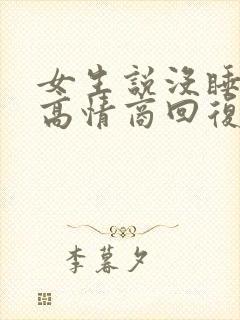 女生說沒睡
高情商回復
李暮夕